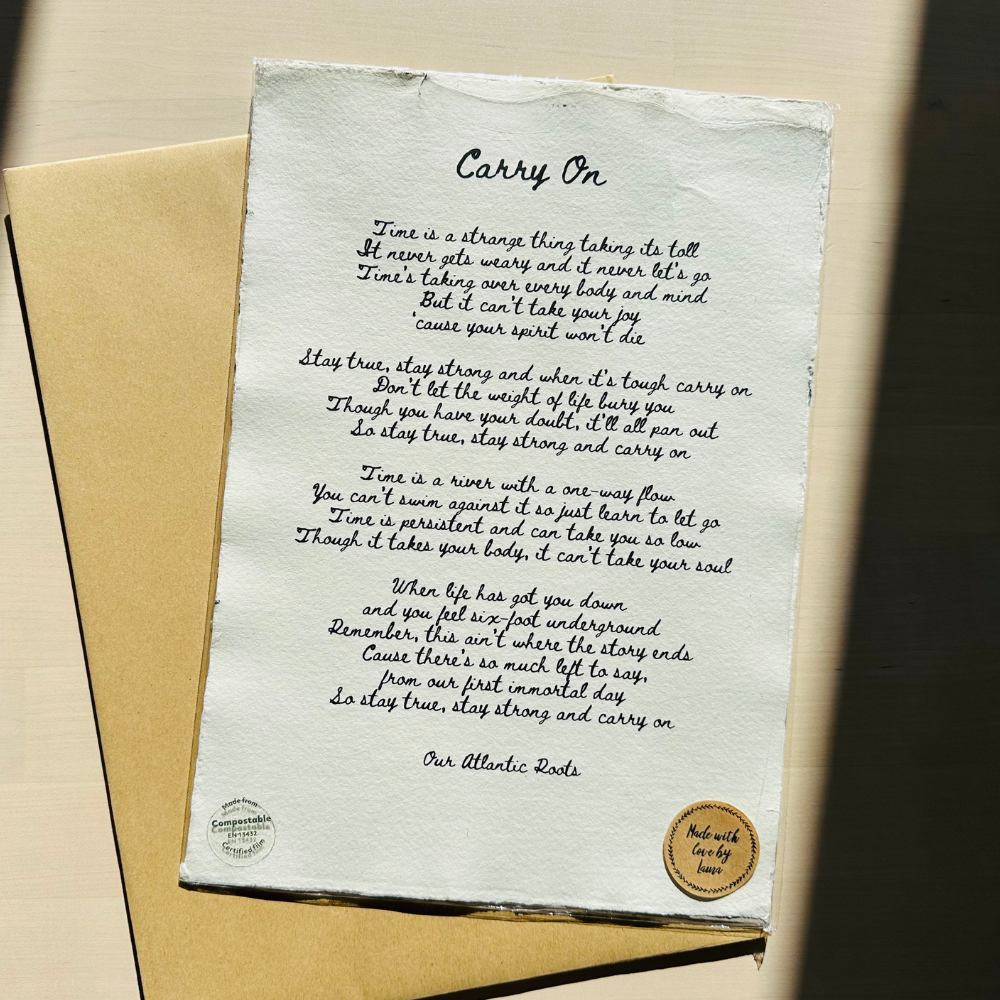 Carry On
Time is a strange thing taking its toll
It never gets weary and it never let's go
Time's taking over every body and mind
But it can't take your joy
'cause your spirit won't die
Stay true, stay strong and when it's tough carry on
Don't let the weight of life bury you
Though you have your doubt, it'll all pan out
So stay true, stay strong and carry on
Time is a river with a one-way flow
You can't swim against it so just learn to let go
Time is persistent and can take you so low
Though it takes your body, it can't take your soul
When life has got you down
and you feel six-foot underground
Remember, this ain't where the story ends
Cause there's so much left to say,
from our first immortal day
So stay true, stay strong and carry on
Our Atlantic Roots
Made from
Compostable
EN 13432
Certified film
Made with
love by
Laura